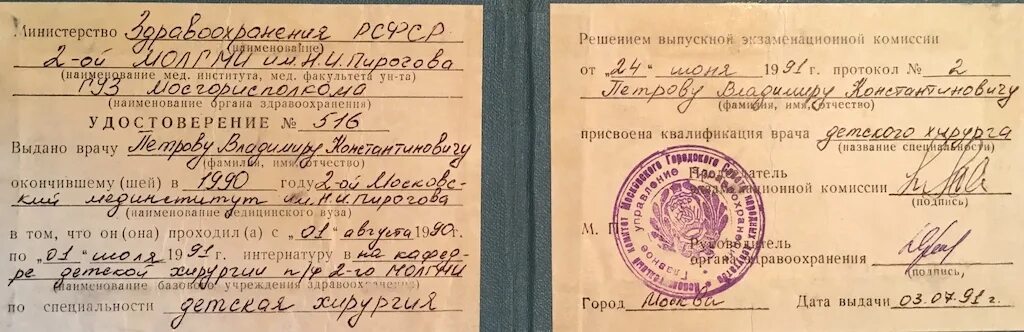 Министерство Здравоохранения РСФСР
(наименование)
2-ой МОЛГМИ им. Н.И. Пирогова
(наименование мед. института, мед. факультета ун-та)
ГУЗ Мосгорисполкома
(наименование органа здравоохранения)
УДОСТОВЕРЕНИЕ № 516
Выдано врачу Петрову Владимиру Константиновичу
(фамилия, имя, отчество)
окончившему (шей) в 1990 году 2-ой Московс-
кий мединститут им. Н.И. Пирогова
(наименование медицинского вуза)
в том, что он (она) проходил (а) с „01" августа 1990г.
по „01" июля 1991 г. интернатуру в на кафед-
ре детской хирургии п/ф 2-го МОЛГМИ
(наименование базового учреждения здравоохранения)
по специальности детская хирургия
Решением выпускной экзаменационной комиссии
от "24" июня 1991 г. протокол № 2
Петрову Владимиру Константиновичу
(фамилия, имя, отчество)
присвоена квалификация врача детского хирурга
(название специальности)
Председатель
экзаменационной комиссии
(подпись)
М. П.
Руководитель
органа здравоохранения
(подпись)
Город Москва Дата выдачи 03.07.91г.